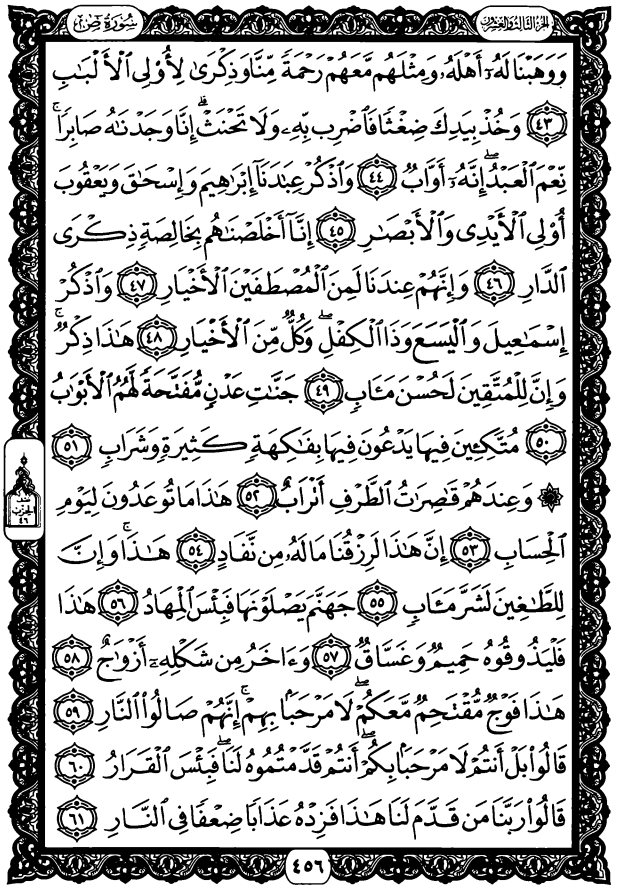 الجزء الثالث والعشرون
سورة ص
وَوَهَبْنَا لَهُۥٓ أَهْلَهُۥ وَمِثْلَهُم مَّعَهُمْ رَحْمَةً مِّنَّا وَذِكْرَىٰ لِأُو۟لِى ٱلْأَلْبَٰبِ
٤٣ وَخُذْ بِيَدِكَ ضِغْثًا فَٱضْرِب بِّهِۦ وَلَا تَحْنَثْ ۗ إِنَّا وَجَدْنَٰهُ صَابِرًا ۚ
نِّعْمَ ٱلْعَبْدُ ۖ إِنَّهُۥٓ أَوَّابٌ ٤٤ وَٱذْكُرْ عِبَٰدَنَآ إِبْرَٰهِيمَ وَإِسْحَٰقَ وَيَعْقُوبَ
أُو۟لِى ٱلْأَيْدِى وَٱلْأَبْصَٰرِ ٤٥ إِنَّآ أَخْلَصْنَٰهُم بِخَالِصَةٍ ذِكْرَى
ٱلدَّارِ ٤٦ وَإِنَّهُمْ عِندَنَا لَمِنَ ٱلْمُصْطَفَيْنَ ٱلْأَخْيَارِ ٤٧ وَٱذْكُرْ
إِسْمَٰعِيلَ وَٱلْيَسَعَ وَذَا ٱلْكِفْلِ ۖ وَكُلٌّ مِّنَ ٱلْأَخْيَارِ ٤٨ هَٰذَا ذِكْرٌ ۚ
وَإِنَّ لِلْمُتَّقِينَ لَحُسْنَ مَـَٔابٍ ٤٩ جَنَّٰتِ عَدْنٍ مُّفَتَّحَةً لَّهُمُ ٱلْأَبْوَٰبُ
٥٠ مُتَّكِـِٔينَ فِيهَا يَدْعُونَ فِيهَا بِفَٰكِهَةٍ كَثِيرَةٍ وَشَرَابٍ ٥١
۞ وَعِندَهُمْ قَٰصِرَٰتُ ٱلطَّرْفِ أَتْرَابٌ ٥٢ هَٰذَا مَا تُوعَدُونَ لِيَوْمِ
ٱلْحِسَابِ ٥٣ إِنَّ هَٰذَا لَرِزْقُنَا مَا لَهُۥ مِن نَّفَادٍ ٥٤ هَٰذَا ۚ وَإِنَّ
لِلطَّٰغِينَ لَشَرَّ مَـَٔابٍ ٥٥ جَهَنَّمَ يَصْلَوْنَهَا فَبِئْسَ ٱلْمِهَادُ ٥٦ هَٰذَا
فَلْيَذُوقُوهُ حَمِيمٌ وَغَسَّاقٌ ٥٧ وَءَاخَرُ مِن شَكْلِهِۦٓ أَزْوَٰجٌ ٥٨
هَٰذَا فَوْجٌ مُّقْتَحِمٌ مَّعَكُمْ ۖ لَا مَرْحَبًۢا بِهِمْ ۚ إِنَّهُمْ صَالُوا۟ ٱلنَّارِ ٥٩
قَالُوا۟ بَلْ أَنتُمْ لَا مَرْحَبًۢا بِكُمْ ۖ أَنتُمْ قَدَّمْتُمُوهُ لَنَا ۖ فَبِئْسَ ٱلْقَرَارُ ٦٠
قَالُوا۟ رَبَّنَا مَن قَدَّمَ لَنَا هَٰذَا فَزِدْهُ عَذَابًا ضِعْفًا فِى ٱلنَّارِ ٦١
الحزب
٤٦
٤٥٦